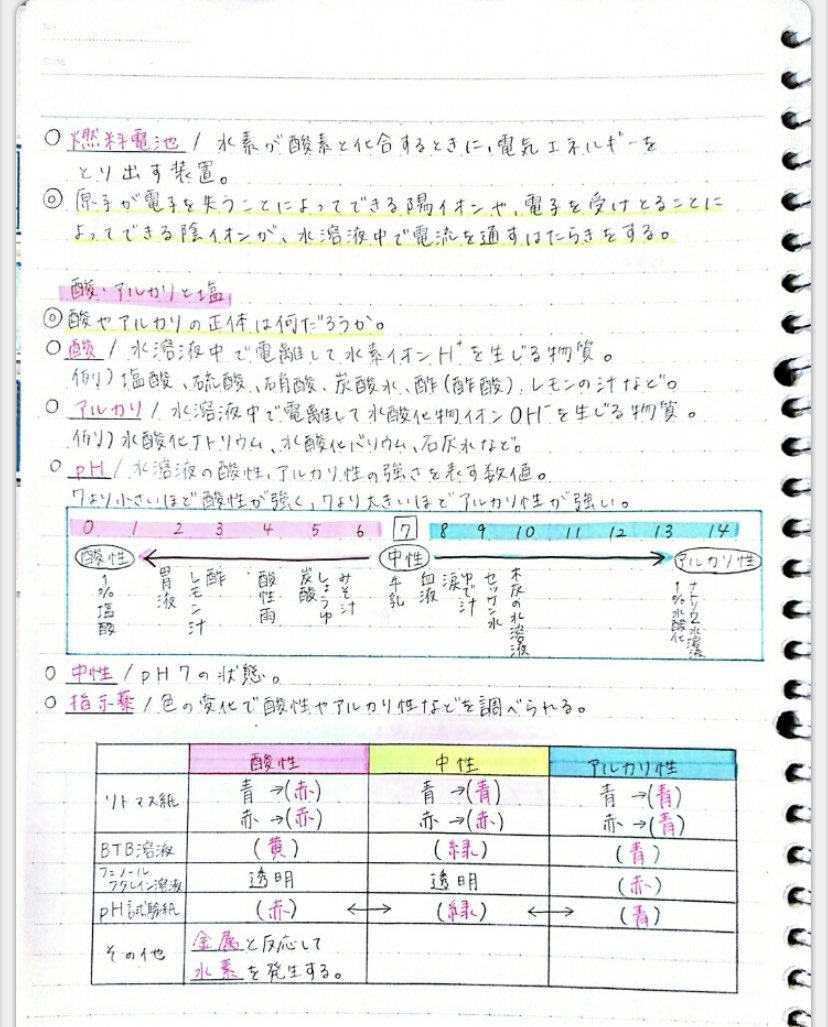 No.
Date
○ 燃料電池 / 水素が酸素と化合するときに、電気エネルギーを
とり出す装置。
◎ 原子が電子を失うことによってできる陽イオンや、電子を受けとることに
よってできる陰イオンが、水溶液中で電流を通すはたらきをする。
酸・アルカリと塩
◎ 酸やアルカリの正体は何だろうか。
○ 酸 / 水溶液中で電離して水素イオンH⁺を生じる物質。
例) 塩酸、硫酸、硝酸、炭酸水、酢(酢酸)、レモンの汁など。
○ アルカリ / 水溶液中で電離して水酸化物イオンOH⁻を生じる物質。
例) 水酸化ナトリウム、水酸化バリウム、石灰水など。
○ pH / 水溶液の酸性、アルカリ性の強さを表す数値。
7より小さいほど酸性が強く、7より大きいほどアルカリ性が強い。
0 1 2 3 4 5 6 7 8 9 10 11 12 13 14
酸性 中性 アルカリ性
1%塩酸
胃液
レモン汁
酢
酸性雨
炭酸
しょうゆ
みそ汁
牛乳
血液
涙
ゆで汁
セッケン水
木灰の水溶液
1%水酸化
ナトリウム水溶液
○ 中性 / pH7の状態。
○ 指示薬 / 色の変化で酸性やアルカリ性などを調べられる。
酸性 中性 アルカリ性
リトマス紙 青→(赤) 青→(青) 青→(青)
赤→(赤) 赤→(赤) 赤→(青)
BTB溶液 (黄) (緑) (青)
フェノール
フタレイン溶液 透明 透明 (赤)
pH試験紙 (赤) ↔ (緑) ↔ (青)
その他 金属と反応して
水素を発生する。